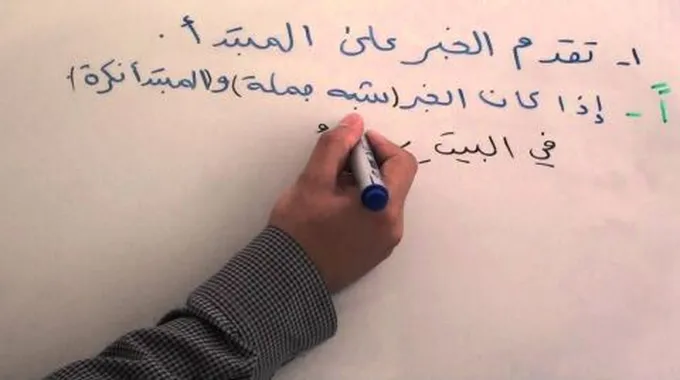 ١- تقدم الخبر على المبتدأ .
أ- إذا كان الخبر (شبه جملة) والمبتدأ نكرة)
في البيتِ